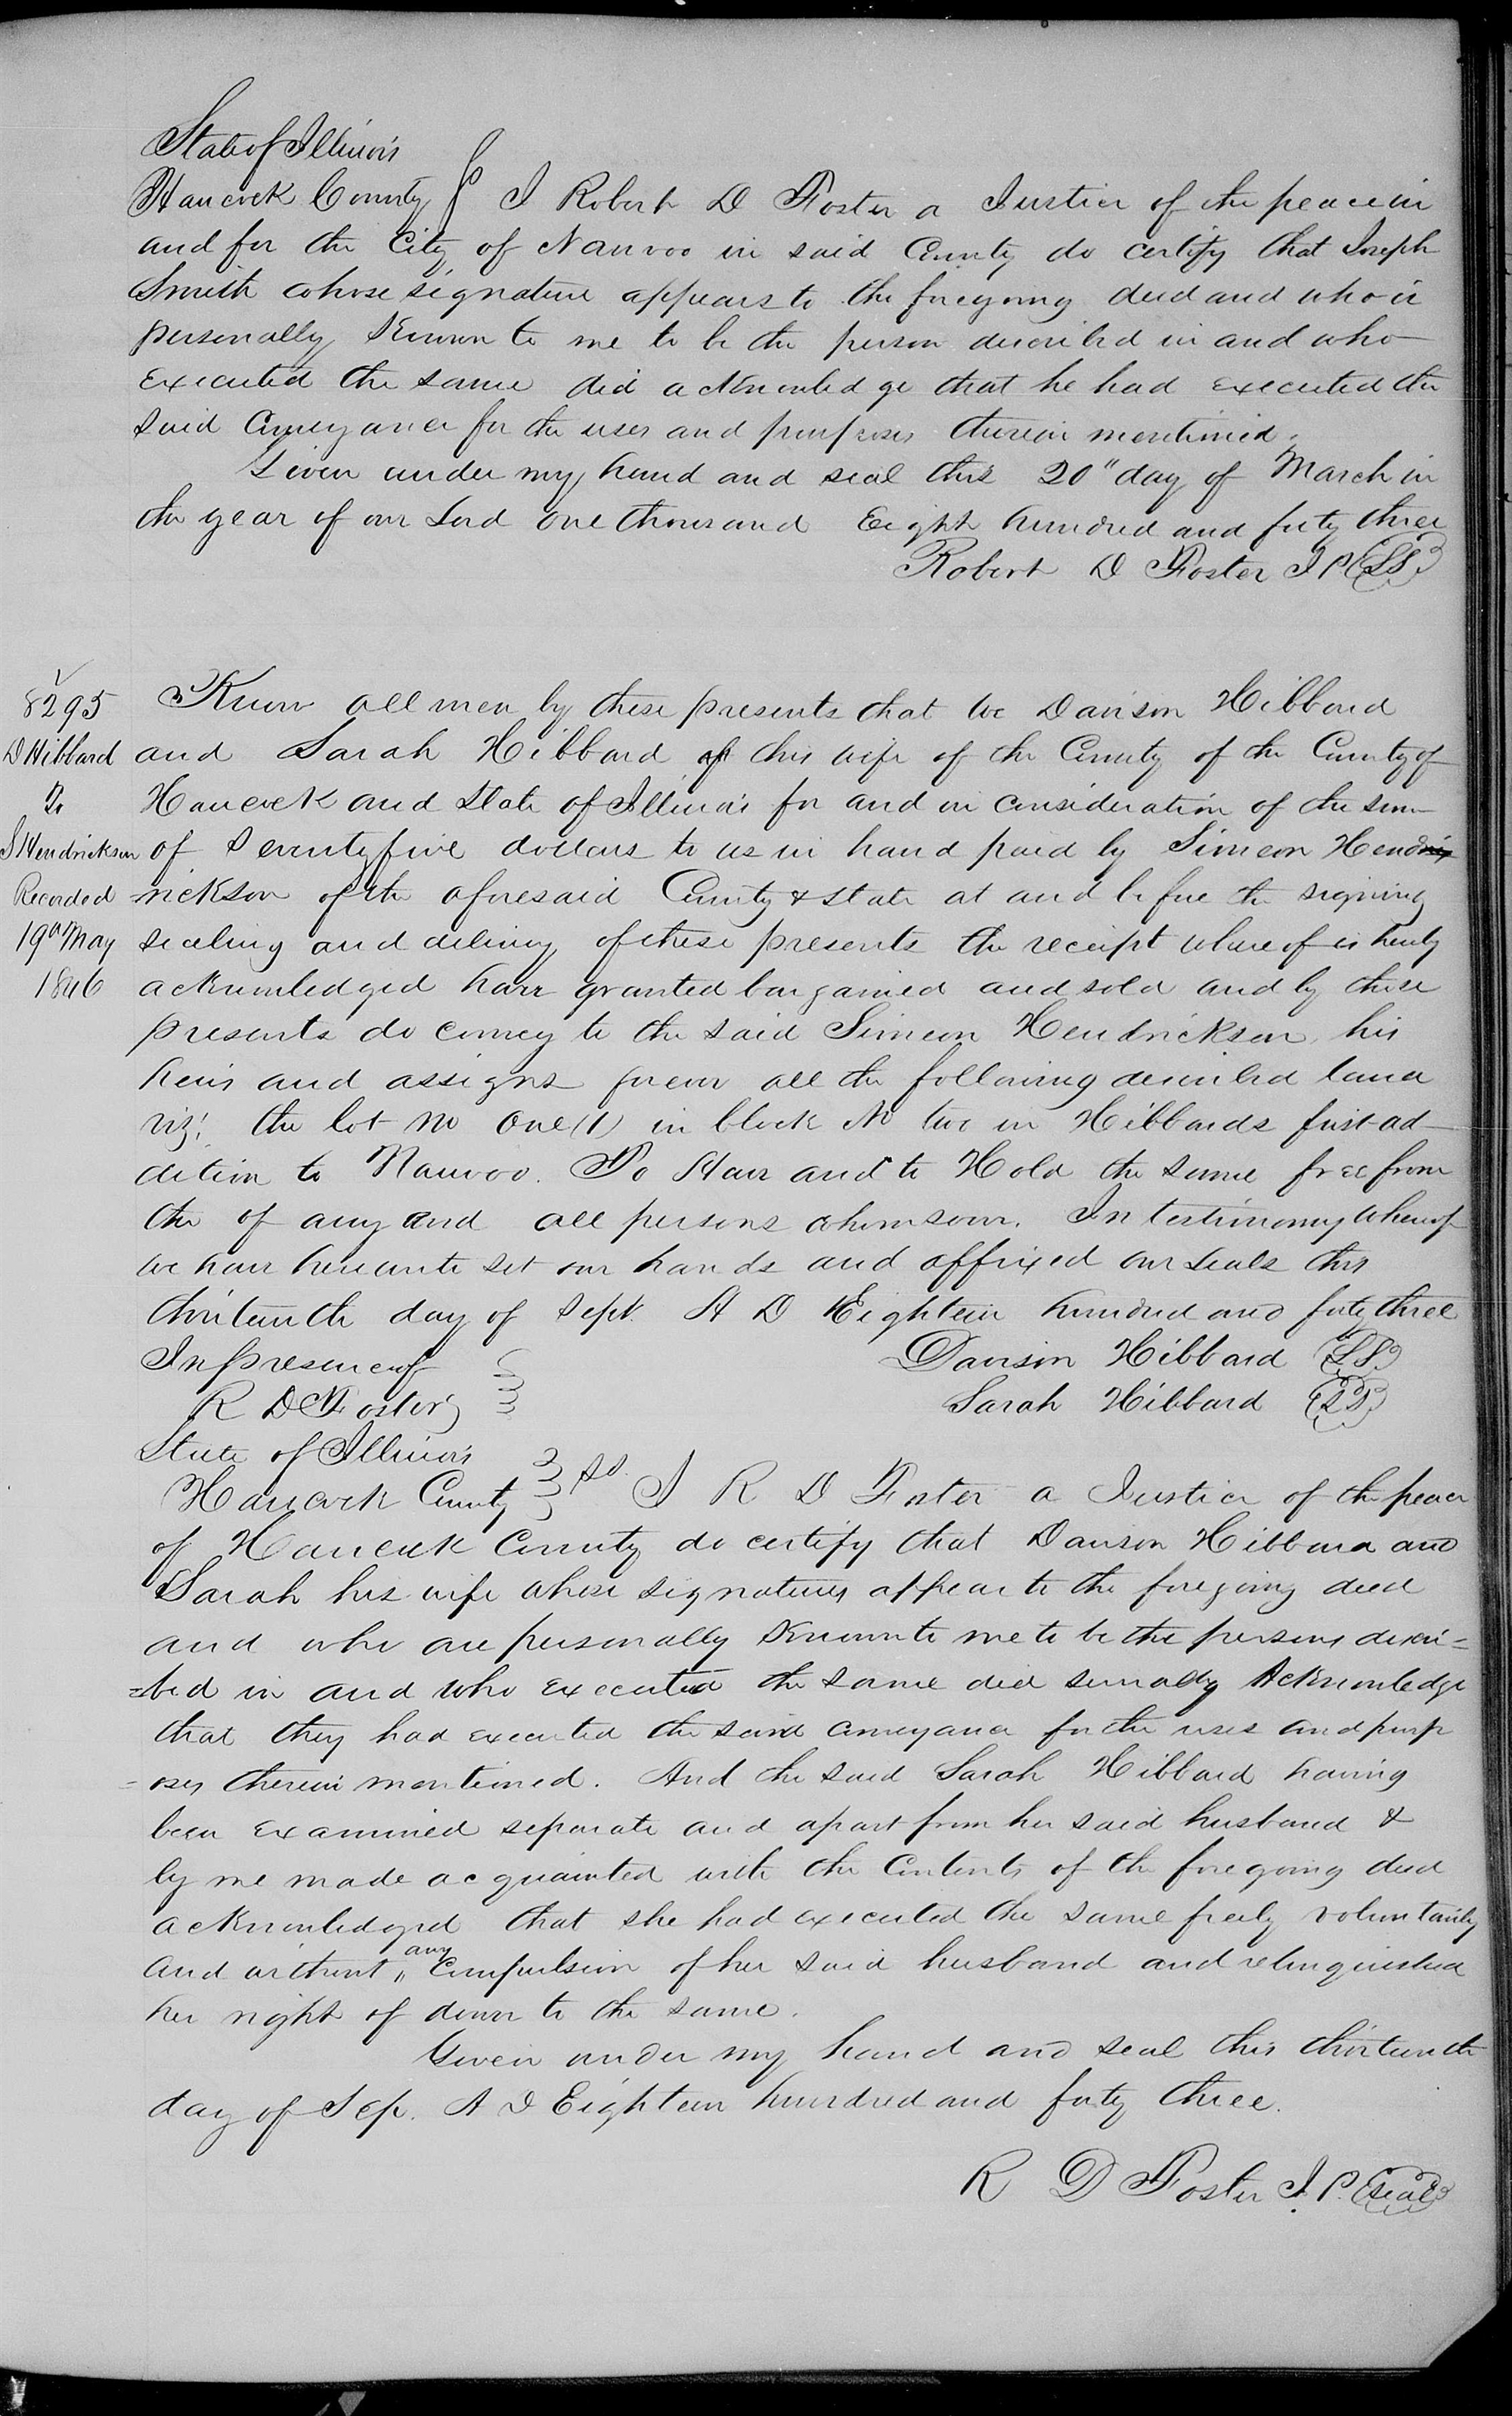 State of Illinois
Hancock County } I Robert D Foster a Justice of the peace in
and for the City of Nauvoo in said County do certify that Joseph
Smith whose signature appears to the foregoing deed and who is
personally known to me to be the person described in and who
executed the same did acknowledge that he had executed the
said Conveyance for the uses and purposes therein mentioned.
Given under my hand and seal this 20" day of March in
the year of our Lord one thousand Eight hundred and forty three
Robert D Foster J P (LS)
8295
D Hibbard
To
S Hendrickson
Recorded
19th May
1846
Know all men by these presents that we Davison Hibbard
and Sarah Hibbard of his wife of the County of the County of
Hancock and State of Illinois for and in consideration of the sum
of Seventy five dollars to us in hand paid by Simeon Hend
=rickson of the aforesaid County & state at and before the signing
sealing and delivery of these presents the receipt whereof is hereby
acknowledged have granted bargained and sold and by these
presents do convey to the said Simeon Hendrickson his
heirs and assigns forever all the following described land
viz: the lot no one (1) in block No two in Hibbards first ad-
dition to Nauvoo. To Have and to Hold the same free from
the of any and all persons whomsoever. In testimony whereof
we have hereunto set our hands and affixed our seals this
thirteenth day of Sept. A D Eighteen hundred and forty three
In presence of } Davison Hibbard (LS)
R D Foster } Sarah Hibbard (LS)
State of Illinois }
Hancock County } ss. I R D Foster a Justice of the peace
of Hancock County do certify that Davison Hibbard and
Sarah his wife whose signatures appear to the foregoing deed
and who are personally known to me to be the persons descri=
=bed in and who executed the same did severally Acknowledge
that they had executed the said conveyance for the uses and purp
-oses therein mentioned. And the said Sarah Hibbard having
been examined separate and apart from her said husband &
by me made acquainted with the Contents of the foregoing deed
acknowledged that she had executed the same freely voluntarily
and without any Compulsion of her said husband and relinquished
her right of dower to the same.
Given under my hand and seal this thirteenth
day of Sep. A D Eighteen hundred and forty three.
R D Foster J. P. (seal)